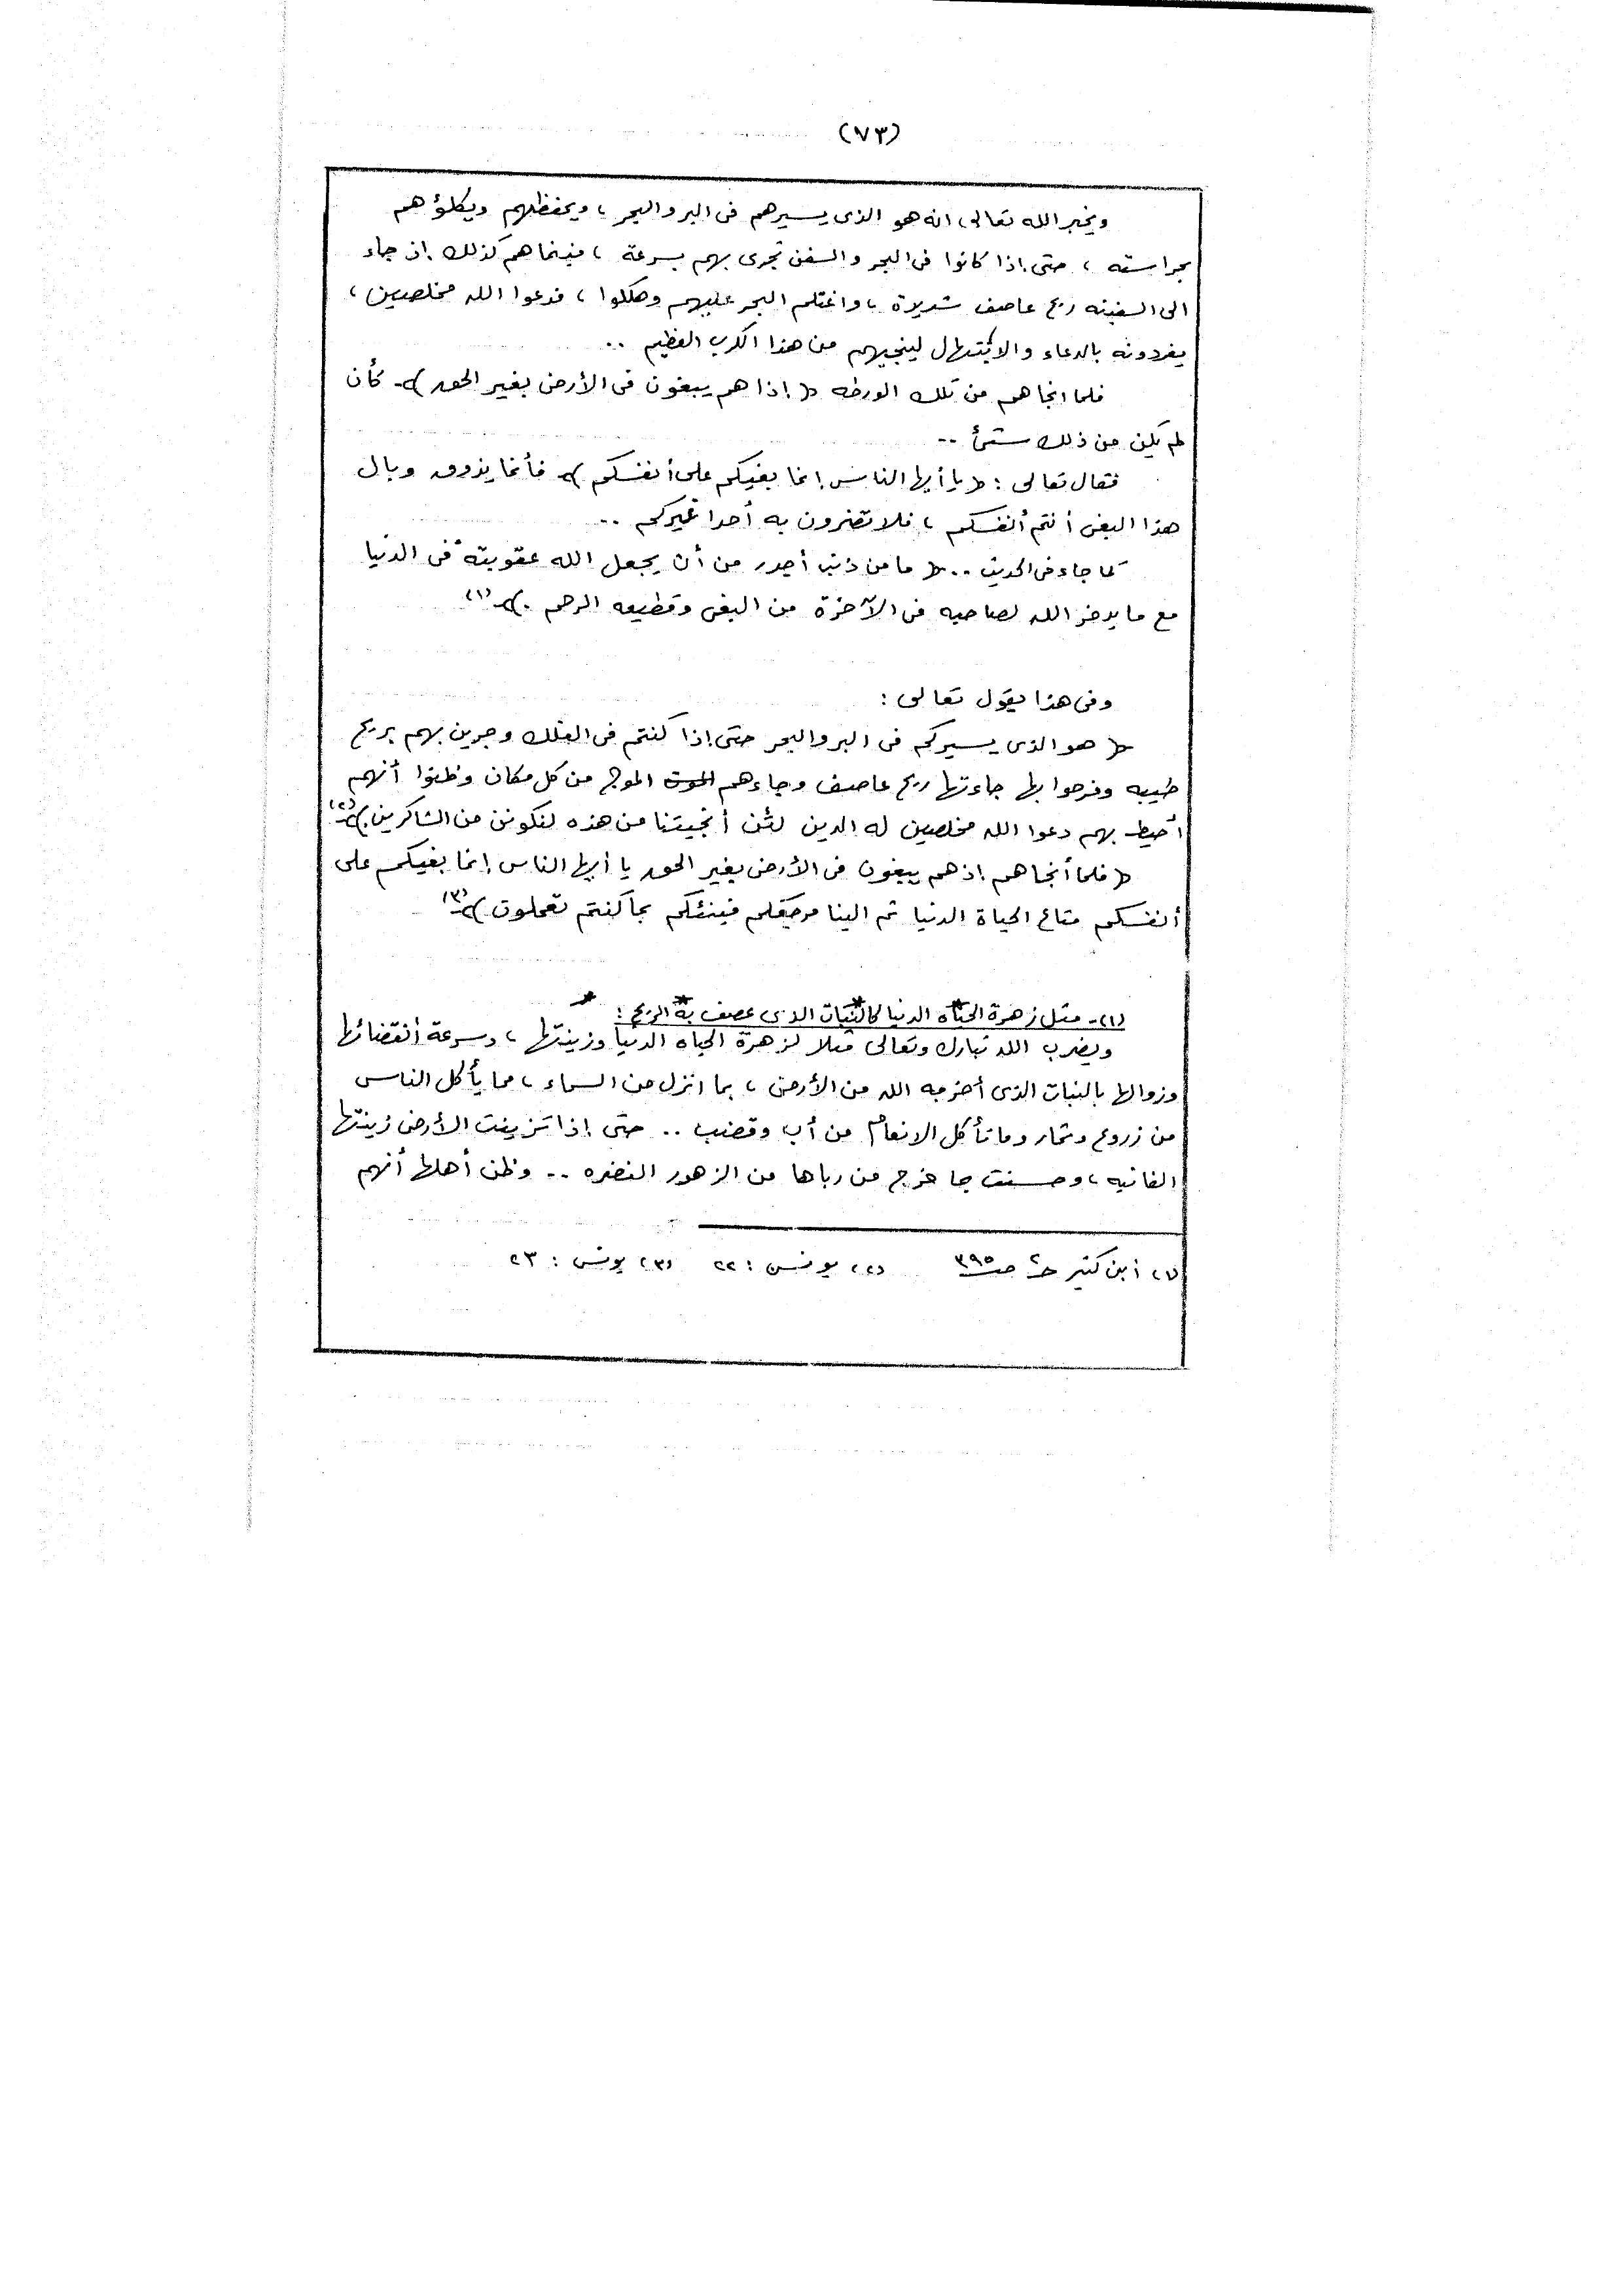 (٧٣)
ويخبر الله تعالى، انه هو الذى يسيرهم فى البر والبحر، ويحفظهم ويكلؤهم
بحراسته، حتى إذا كانوا فى البحر والسفن تجرى بهم بسرعة، فبينما هم كذلك إذ جاء
الى السفينه ريح عاصف شديدة، واغتلم البحر عليهم وهلكوا، فدعوا الله مخلصين،
يفردونه بالدعاء والابتهال لينجيهم من هذا الكرب العظيم ..
فلما انجاهم من تلك الورطه ﴿ إذا هم يبغون فى الأرض بغير الحق ﴾ كأن
لم يكن من ذلك شئ ..
فقال تعالى : ﴿ يا أيها الناس إنما بغيكم على أنفسكم ﴾ فأنما يذوق وبال
هذا البغى أنتم أنفسكم، فلا تضرون به أحدا غيركم ..
كما جاء فى الحديث .. ﴿ ما من ذنب أجدر من أن يجعل الله عقوبته فى الدنيا
مع ما يدخر الله لصاحبه فى الآخرة من البغى وقطيعه الرحم . ﴾ (١)
وفى هذا يقول تعالى :
﴿ هو الذى يسيركم فى البر والبحر حتى إذا كنتم فى الفلك وجرين بهم بريح
طيبه وفرحوا بها جاءتها ريح عاصف وجاءهم الموج من كل مكان وظنوا أنهم
أحيط بهم دعوا الله مخلصين له الدين لئن أنجيتنا من هذه لنكونن من الشاكرين . ﴾ (٢)
﴿ فلما أنجاهم إذ هم يبغون فى الأرض بغير الحق يا أيها الناس إنما بغيكم على
أنفسكم متاع الحياة الدنيا ثم الينا مرجعكم فينئكم بما كنتم تعملون ﴾ (٣)
(١)- مثل زهرة الحياه الدنيا كالنبات الذى عصف به الريح :
ويضرب الله تبارك وتعالى مثلا لزهرة الحياه الدنيا وزينتها، وسرعة أنقضائها
وزوالها بالنبات الذى أخرجه الله من الأرض، بما انزل من السماء، مما يأكل الناس
من زروع وثمار وما تأكل الانعام من أب وقضب .. حتى إذا تزينت الأرض زينتها
الفانيه، وحسنت بما خرج من رباها من الزهور النضره .. وظن أهلها أنهم
(١) أبن كثير حـ٢ صـ٣٩٥ (٢) يونس : ٢٢ (٣) يونس : ٢٣